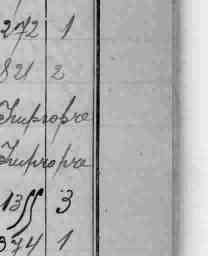 272 1
821 2
Impropre
Impropre
1355 3
374 1